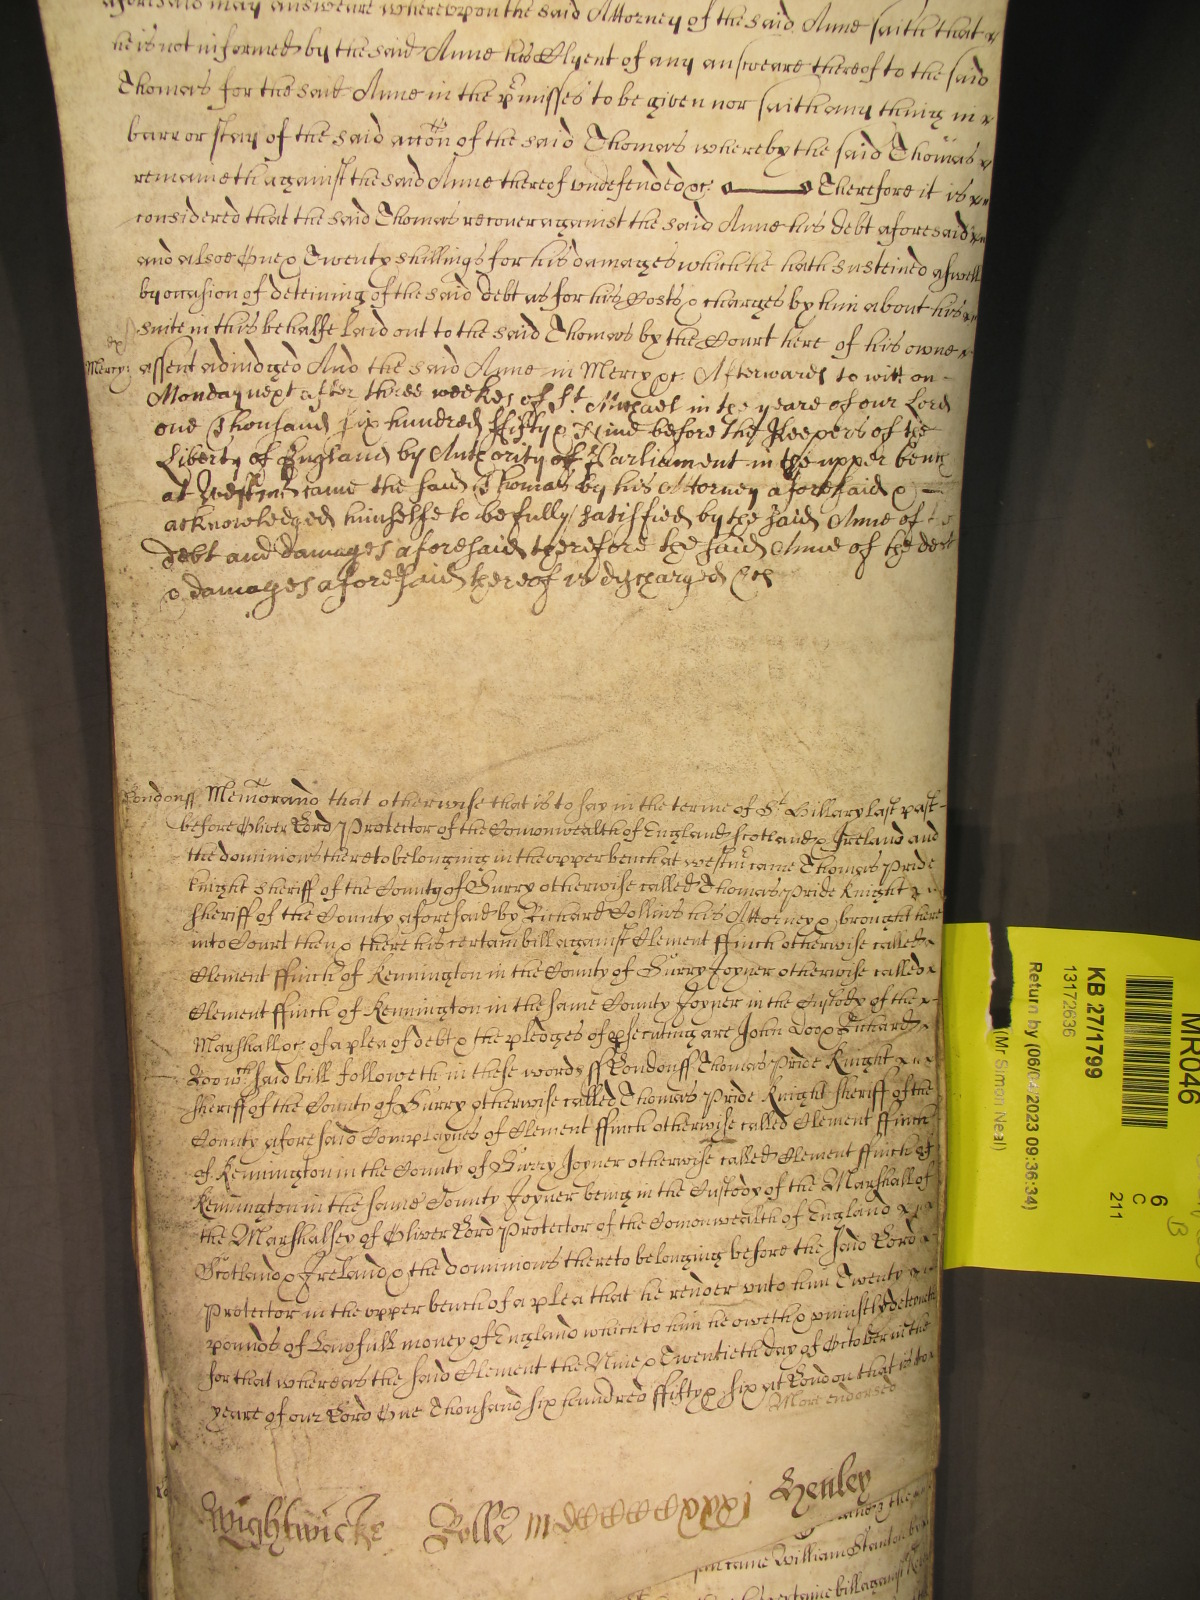 aforesaid may answeare whereupon the said Attorney of the said Anne saith that
he is not informed by the said Anne his Clyent of any answeare thereof to the said
Thomas for the said Anne in the p'misses to be given nor saith any thing in
barr or stay of the said accon of the said Thomas whereby the said Thomas
remaineth against the said Anne thereof undefended &c. Therefore it is
considered that the said Thomas recover against the said Anne his debt aforesaid
and alsoe One & Twenty shillings for his damages which he hath susteined aswell
by occasion of deteining of the said debt as for his Costs & charges by him about his
suite in this behalfe laid out to the said Thomas by the Court here of his owne
Mercy assent adiudged And the said Anne in Mercy &c. Afterwards to witt on
Monday next after three weekes of St. Michael in the yeare of our Lord
one Thousand six hundred ffifty & Nine before the Keepers of the
Liberty of England by Authority of Parliament in the upper bench
at Westm' came the said Thomas by his Attorney aforesaid &
acknowledged himselfe to be fully satisfied by the said Anne of the
debt and damages aforesaid therefore the said Anne of the debt
& damages aforesaid thereof is discharged &c
London ss Memorand that otherwise that is to say in the terme of St. Hillary last past
before Oliver Lord Protector of the Comonwealth of England Scotland & Ireland and
the dominions thereto belonging in the upper bench at Westm' came Thomas Pride
Knight Sheriff of the County of Surry otherwise called Thomas Pride Knight
Sheriff of the County aforesaid by Richard Collins his Attorney & brought here
into Court then & there his certain bill against Clement ffinch otherwise called
Clement ffinch of Kennington in the County of Surry Joyner otherwise called
Clement ffinch of Kennington in the same County Joyner in the Custody of the
Marshall &c. of a plea of debt & the pledges of p'secuting are John Doo & Richard
Roo wch said bill followeth in these words ss London ss Thomas Pride Knight
Sheriff of the County of Surry otherwise called Thomas Pride Knight Sheriff of the
County aforesaid Complaynes of Clement ffinch otherwise called Clement ffinch
of Kennington in the County of Surry Joyner otherwise called Clement ffinch of
Kennington in the same County Joyner being in the Custody of the Marshall of
the Marshalsey of Oliver Lord Protector of the Comonwealth of England
Scotland & Ireland & the dominions thereto belonging before the said Lord
Protector in the upper bench of a plea that he render unto him Twenty
pounds of Lawfull money of England which to him he oweth & uniustly deteineth
for that whereas the said Clement the Nine & Twentieth day of October in the
yeare of our Lord One Thousand six hundred ffifty & six at London that is to
More endorsed
Wightwicke Rolle Henley
came William Stanton by
bill against
MR046
6
C
211
KB 27/1799
13172636
Return by (06/04/2023 09:36:34)
(Mr Simon Neal)